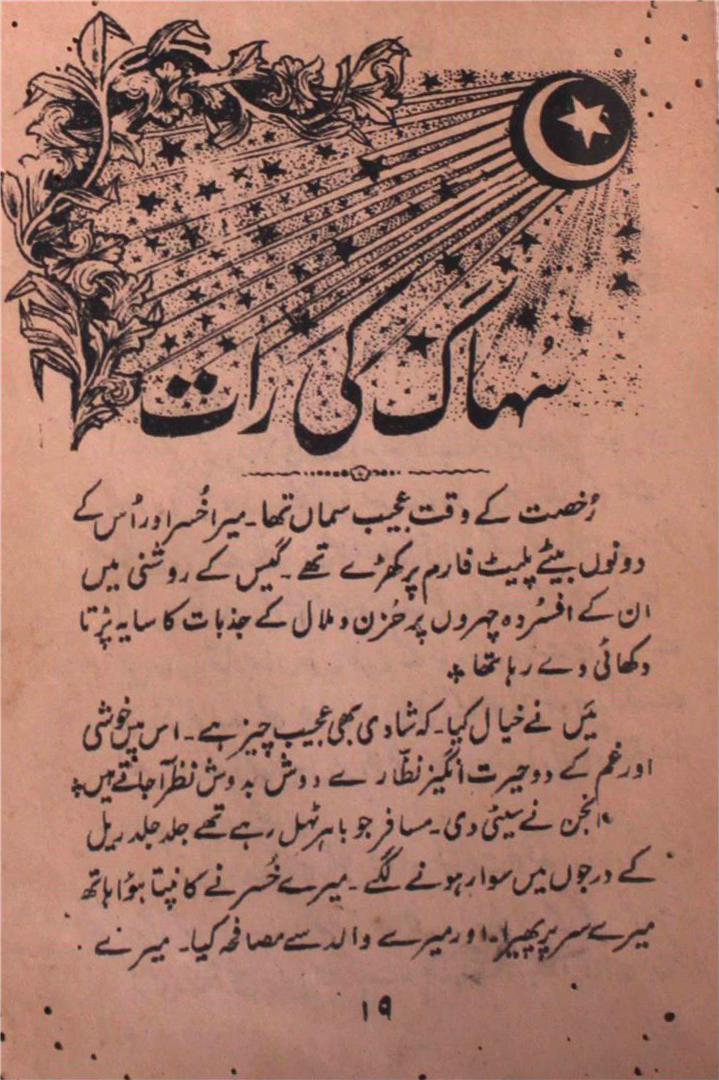 سُہاگ کی رات
رُخصت کے وقت عجیب سماں تھا۔ میرا خُسر اور اُس کے
دونوں بیٹے پلیٹ فارم پر کھڑے تھے۔ گیس کے روشنی میں
ان کے افسُردہ چہروں پر حُزن و ملال کے جذبات کا سایہ پڑتا
دکھائی دے رہا تھا ؞
مَیں نے خیال کیا۔ کہ شادی بھی عجیب چیز ہے۔ اس میں خوشی
اور غم کے دو حیرت انگیز نظّارے دوش بدوش نظر آجاتے ہیں ؞
انجن نے سیٹی دی۔ مسافر جو باہر ٹہل رہے تھے جلد جلد ریل
کے درجوں میں سوار ہونے لگے۔ میرے خُسر نے کانپتا ہوٗا ہاتھ
میرے سر پر پھیرا۔ اور میرے والد سے مصافحہ کیا۔ میرے
۱۹